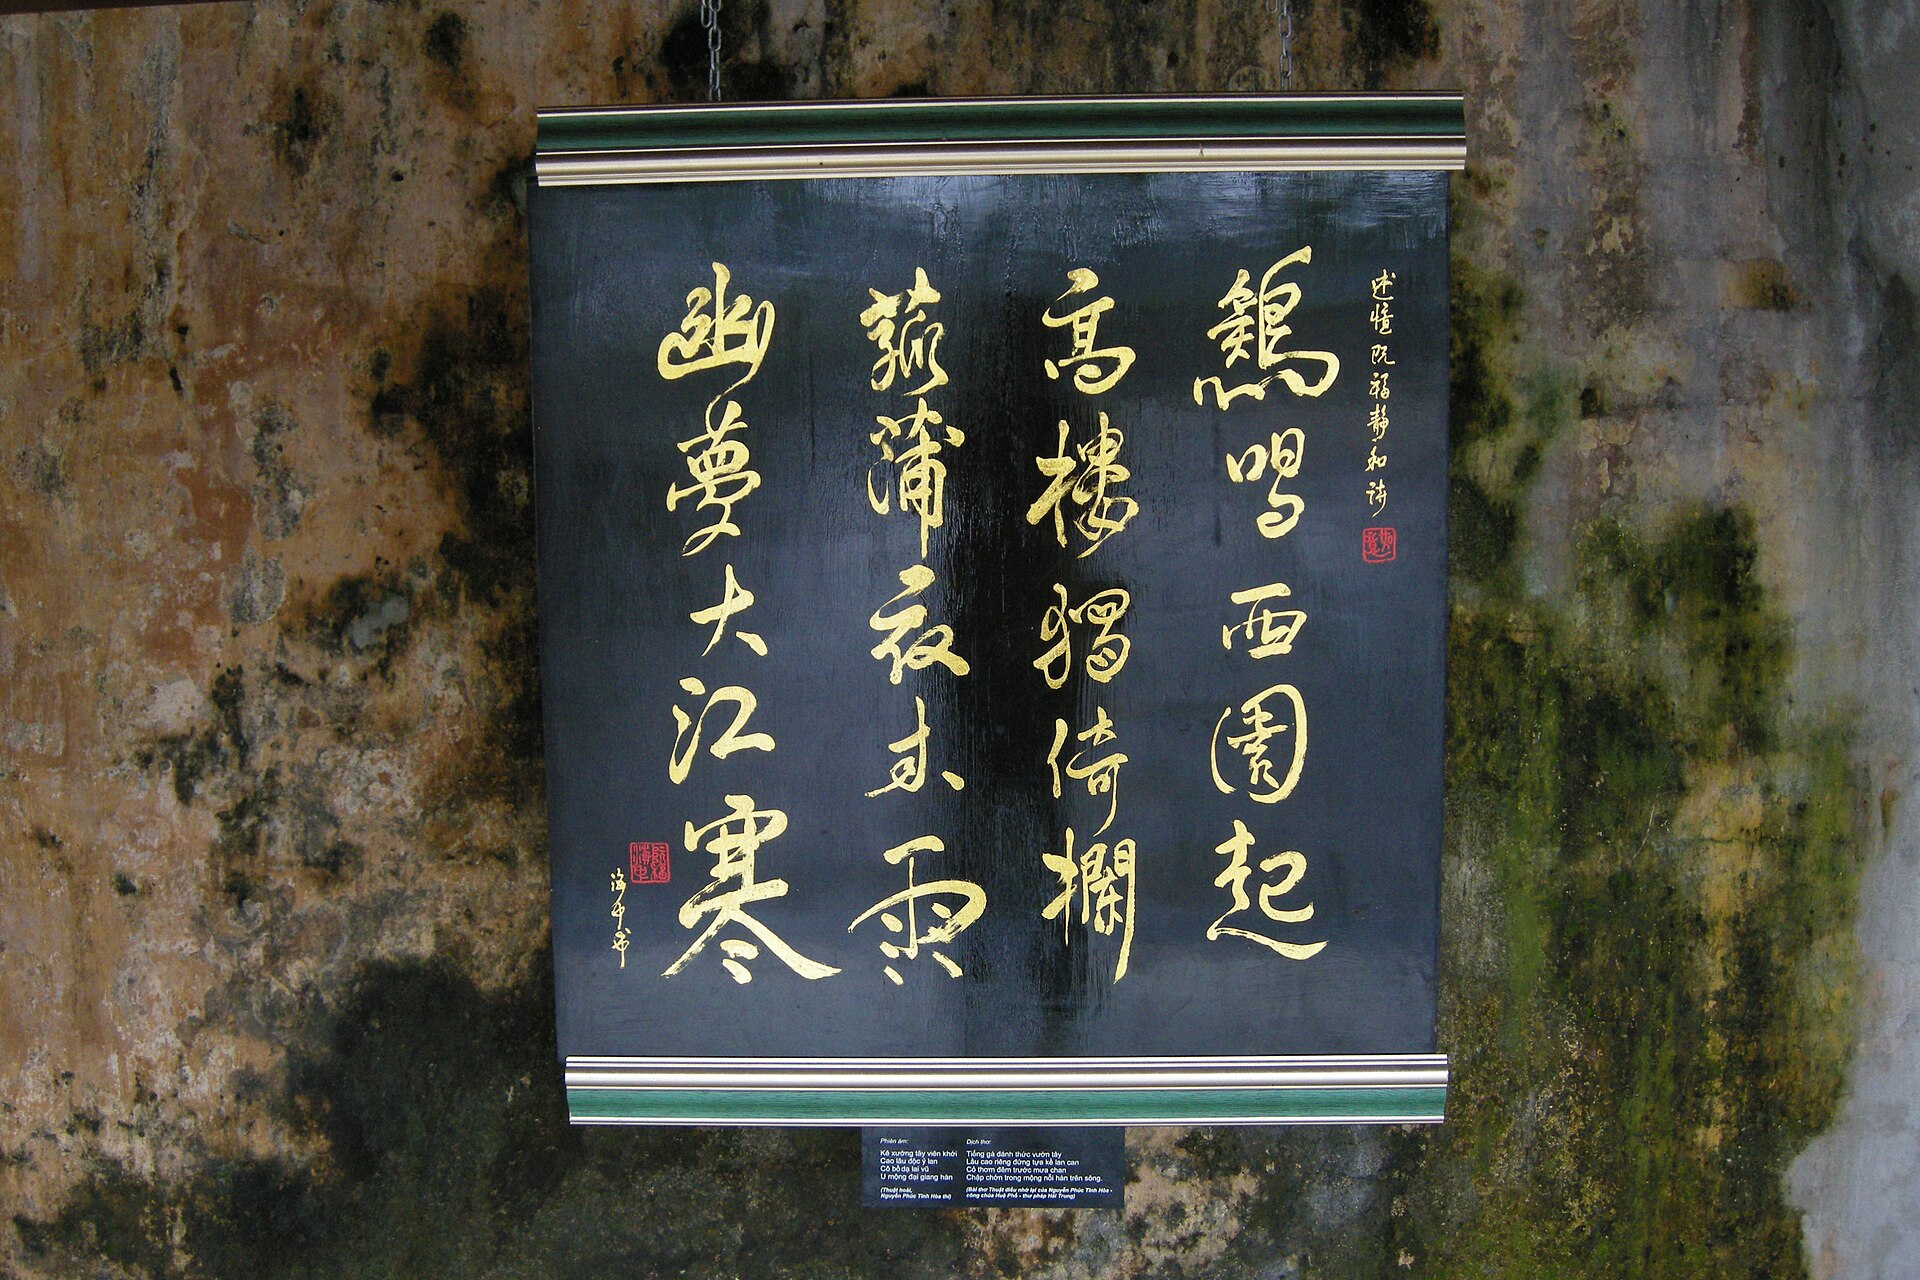 述懷阮福靜和詩
鷄唱西園起
高樓獨倚欄
菰蒲夜来雨
幽夢大江寒
海中书
Phiên âm:
Kê xướng tây viên khởi
Cao lâu độc ỷ lan
Cô bồ dạ lai vũ
U mộng đại giang hàn
(Thuật hoài,
Nguyễn Phúc Tĩnh Hòa thi)
Dịch thơ:
Tiếng gà đánh thức vườn tây
Lầu cao riêng đứng tựa kề lan can
Cỏ thơm đêm trước mưa chan
Chập chờn trong mộng nỗi hàn trên sông.
(Bài thơ Thuật điều nhớ lại của Nguyễn Phúc Tĩnh Hòa -
công chúa Huệ Phố - thư pháp Hải Trung)